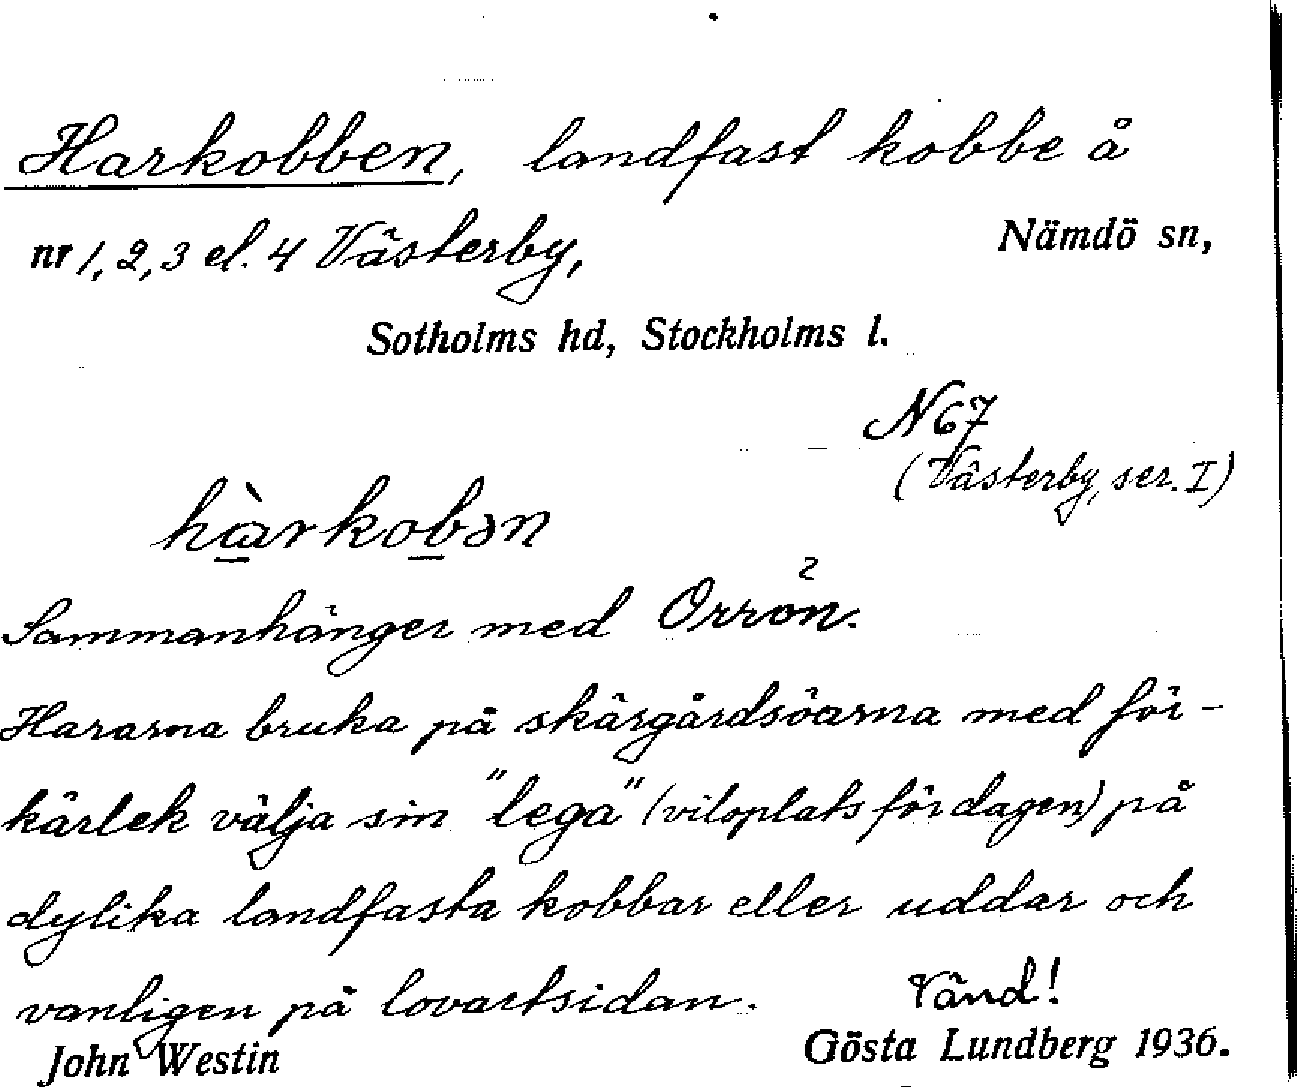 Harkobben, landfast kobbe å
nr 1, 2, 3 el. 4 Västerby, Nämdö sn,
Sotholms hd, Stockholms l.
N67
(Västerby, ser. I)
hàrkobən
2
Sammanhänger med Orrön.
Hararna bruka på skärgårdsöarna med för-
kärlek välja sin "lega" (viloplats för dagen) på
dylika landfasta kobbar eller uddar och
vanligen på lovartsidan. Vänd!
John Westin Gösta Lundberg 1936.